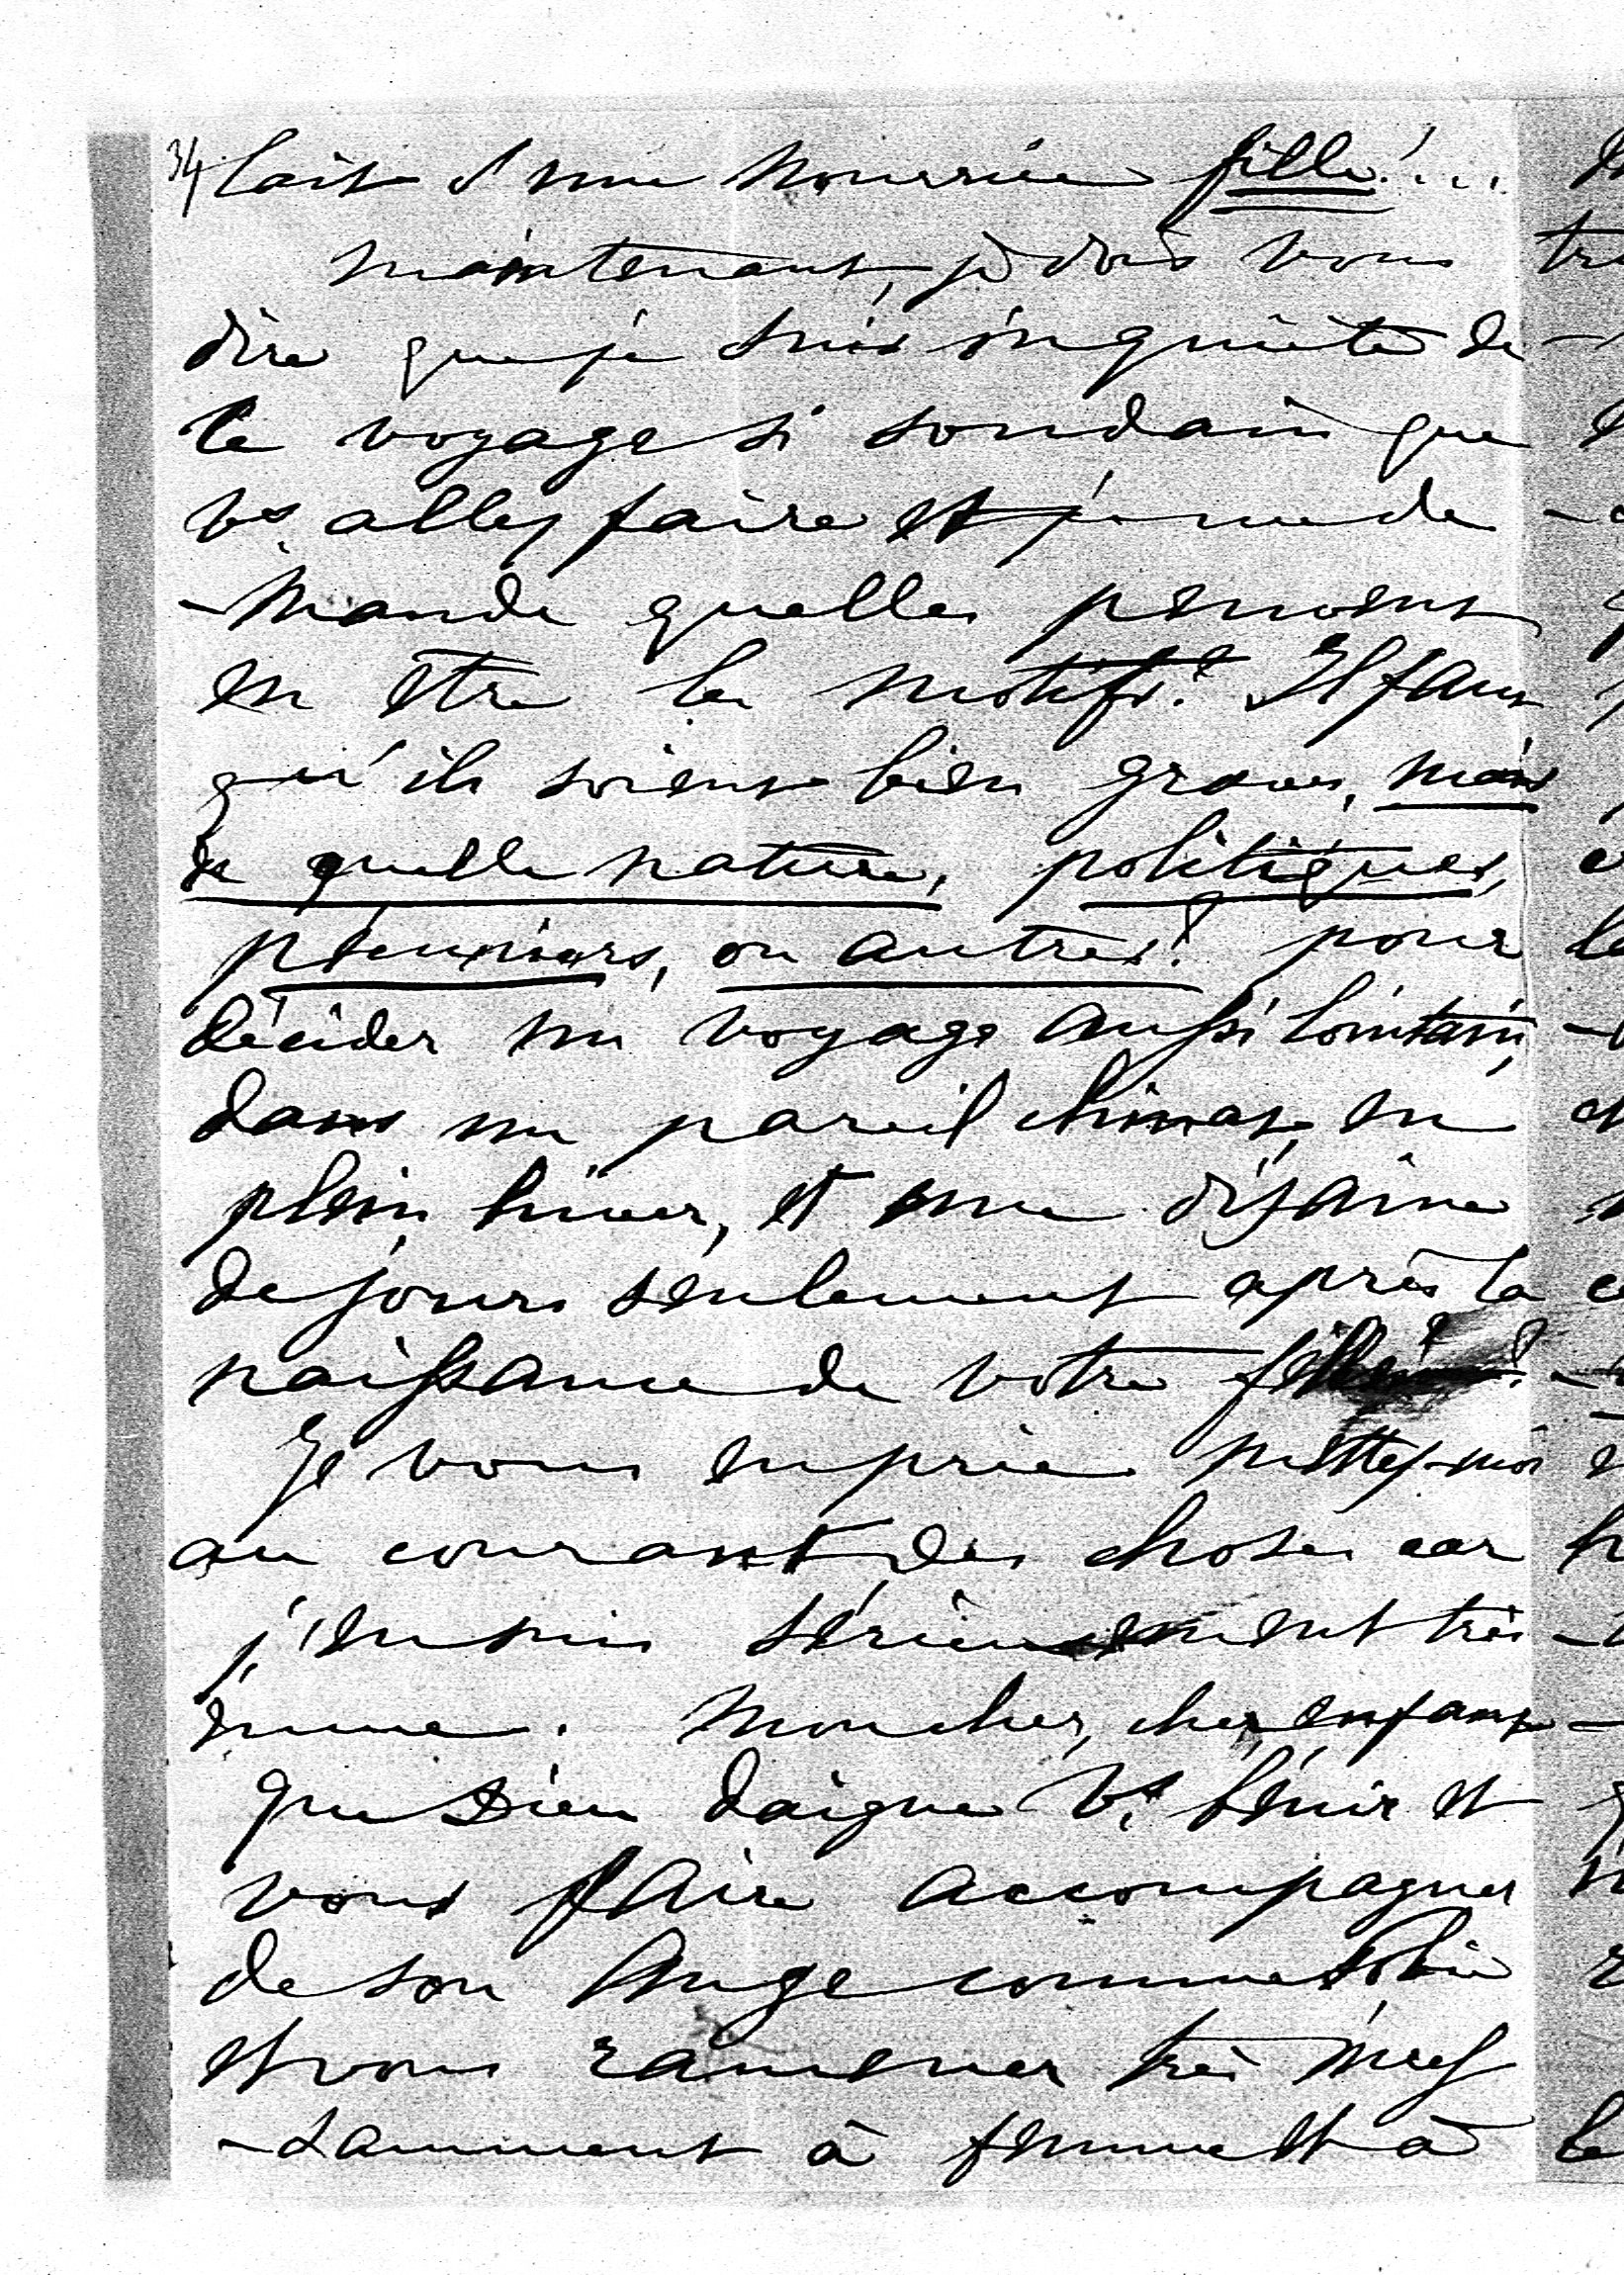 34 lait d'une nourrice fille!...
maintenant, je dois vous
dire que je suis inquiète de
ce voyage si soudain que
vs allez faire et je me de
-mande quelles peuvent
en être les motifs? Il faut
qu'ils soient bien graves, mais
de quelle nature, politiques,
pécuniers, ou autres? pour
décider un voyage aussi lointain,
dans un pareil climat, en
plein hiver, et une dizaine
de jours seulement après la
naissance de votre
Je vous en prie mettez-moi
au courant des choses car
j'en suis sérieusement très
émue. Mon cher, cher enfant
que Dieu daigne vs bénir et
vous faire accompagner
de son Ange comme Tobie
et vous ramener très
-samment à femme et à